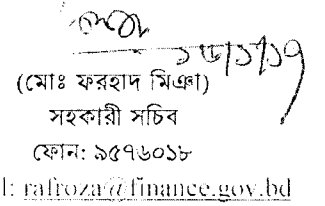 ১৬/১/১৭
(মোঃ ফরহাদ মিঞা)
সহকারী সচিব
ফোন: ৯৫৭৬০১৮
l: rafroza@finance.gov.bd